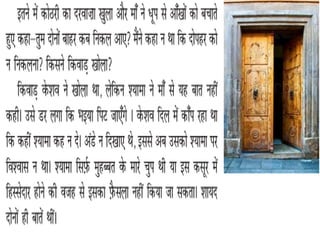 इतने में कोठरी का दरवाज़ा खुला और माँ ने धूप से आँखों को बचाते
हुए कहा-तुम दोनों बाहर कब निकल आए? मैंने कहा न था कि दोपहर को
न निकलना? किसने किवाड़ खोला?
किवाड़ केशव ने खोला था, लेकिन श्यामा ने माँ से यह बात नहीं
कही। उसे डर लगा कि भइया पिट जाएँगे । केशव दिल में काँप रहा था
कि कहीं श्यामा कह न दे। अंडे न दिखाए थे, इससे अब उसको श्यामा पर
विश्वास न था। श्यामा सिर्फ़ मुहब्बत के मारे चुप थी या इस कसूर में
हिस्सेदार होने की वजह से इसका फ़ैसला नहीं किया जा सकता। शायद
दोनों ही बातें थीं।